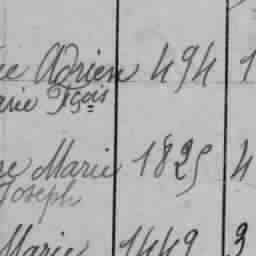 ée Adrien 494 1
arie Fçois
re Marie 1825 4
Joseph
Marie 1449 3